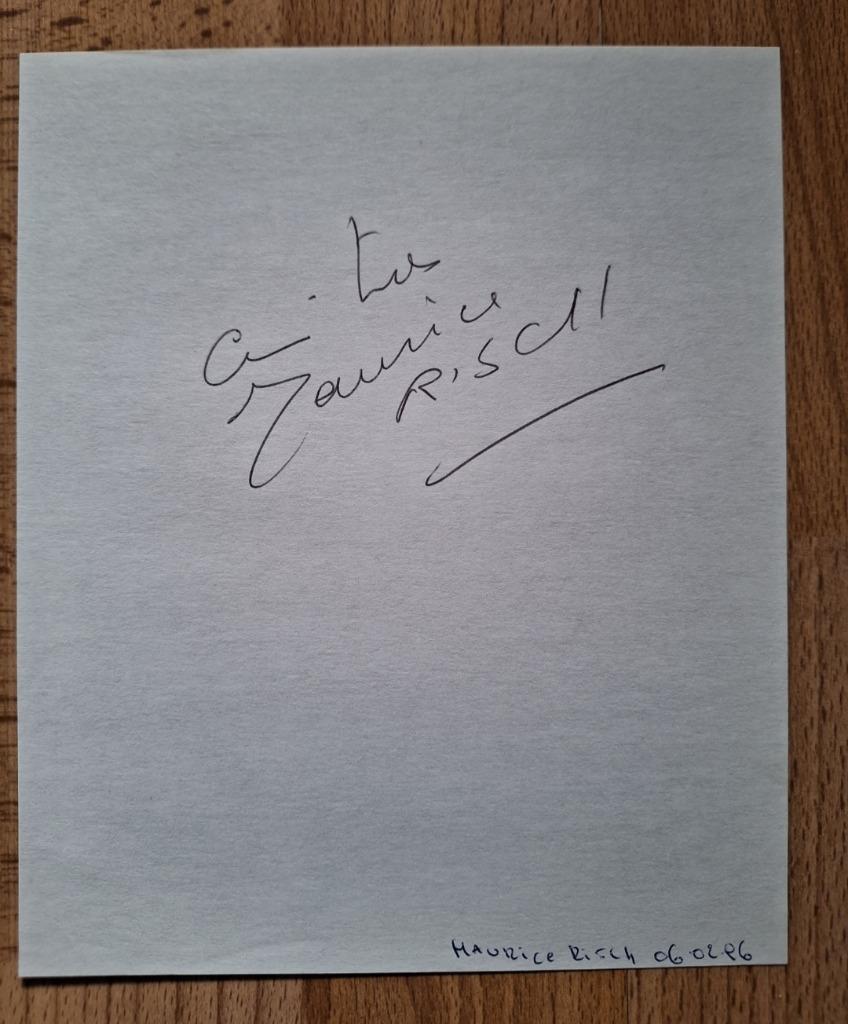 Maurice
RISCH
MAURICE RISCH 06.02.86